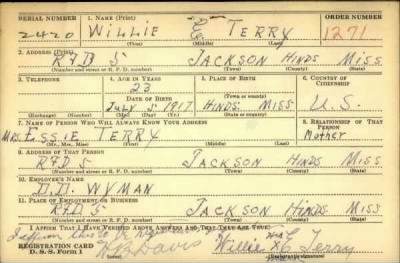 SERIAL NUMBER 1. NAME (Print) ORDER NUMBER
2420 WILLIE E. TERRY 1271
(First) (Middle) (Last)
2. ADDRESS (Print)
RFD 5 JACKSON HINDS MISS
(Number and street or R. F. D. number) (Town) (County) (State)
3. TELEPHONE 4. AGE IN YEARS 5. PLACE OF BIRTH 6. COUNTRY OF CITIZENSHIP
23
DATE OF BIRTH (Town or county)
July 5 1917 HINDS MISS U.S.
(Exchange) (Number) (Mo.) (Day) (Yr.) (State or country)
7. NAME OF PERSON WHO WILL ALWAYS KNOW YOUR ADDRESS 8. RELATIONSHIP OF THAT PERSON
MRS. ESSIE TERRY Mother
(Mr., Mrs., Miss) (First) (Middle) (Last)
9. ADDRESS OF THAT PERSON
RFD 5 JACKSON HINDS MISS
(Number and street or R. F. D. number) (Town) (County) (State)
10. EMPLOYER'S NAME
D.D. WYMAN
11. PLACE OF EMPLOYMENT OR BUSINESS
RFD 5 JACKSON HINDS MISS
(Number and street or R. F. D. number) (Town) (County) (State)
I AFFIRM THAT I HAVE VERIFIED ABOVE ANSWERS AND THAT THEY ARE TRUE.
I affirm this to be
REGISTRATION CARD Davis Willie X E Terry
D. S. S. Form 1 (Registrant's signature)